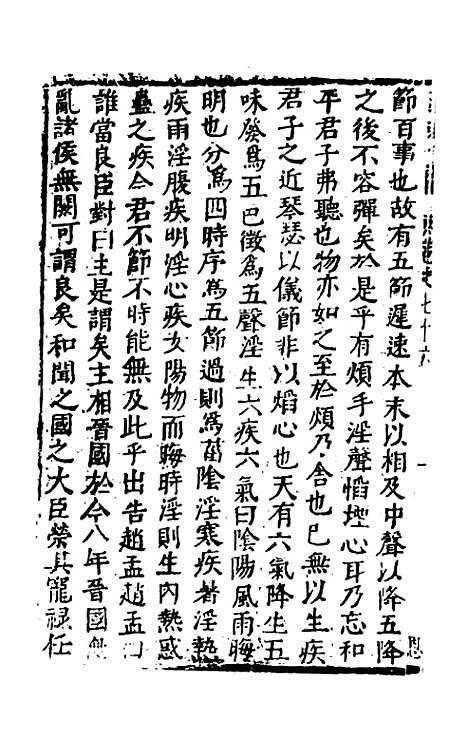 節百事也故有五節遲速本末以相及中聲以降五降
之後不容彈矣於是乎有煩手淫聲慆堙心耳乃忘和
平君子弗聽也物亦如之至於煩乃舍也已無以生疾
君子之近琴瑟以儀節非以慆心也天有六氣降生五
味發爲五巴徵爲五聲淫生六疾六氣曰陰陽風雨晦
明也分爲四時序爲五節過則爲菑陰淫寒疾著淫熱
疾雨淫腹疾明淫心疾女陽物而晦時淫則生內熱惑
蠱之疾今君不節不時能無及此乎出告趙孟趙孟曰
誰當良臣對曰主是謂矣主相晉國於今八年晉國無
亂諸侯無闕可謂良矣和聞之國之大臣榮其寵祿任